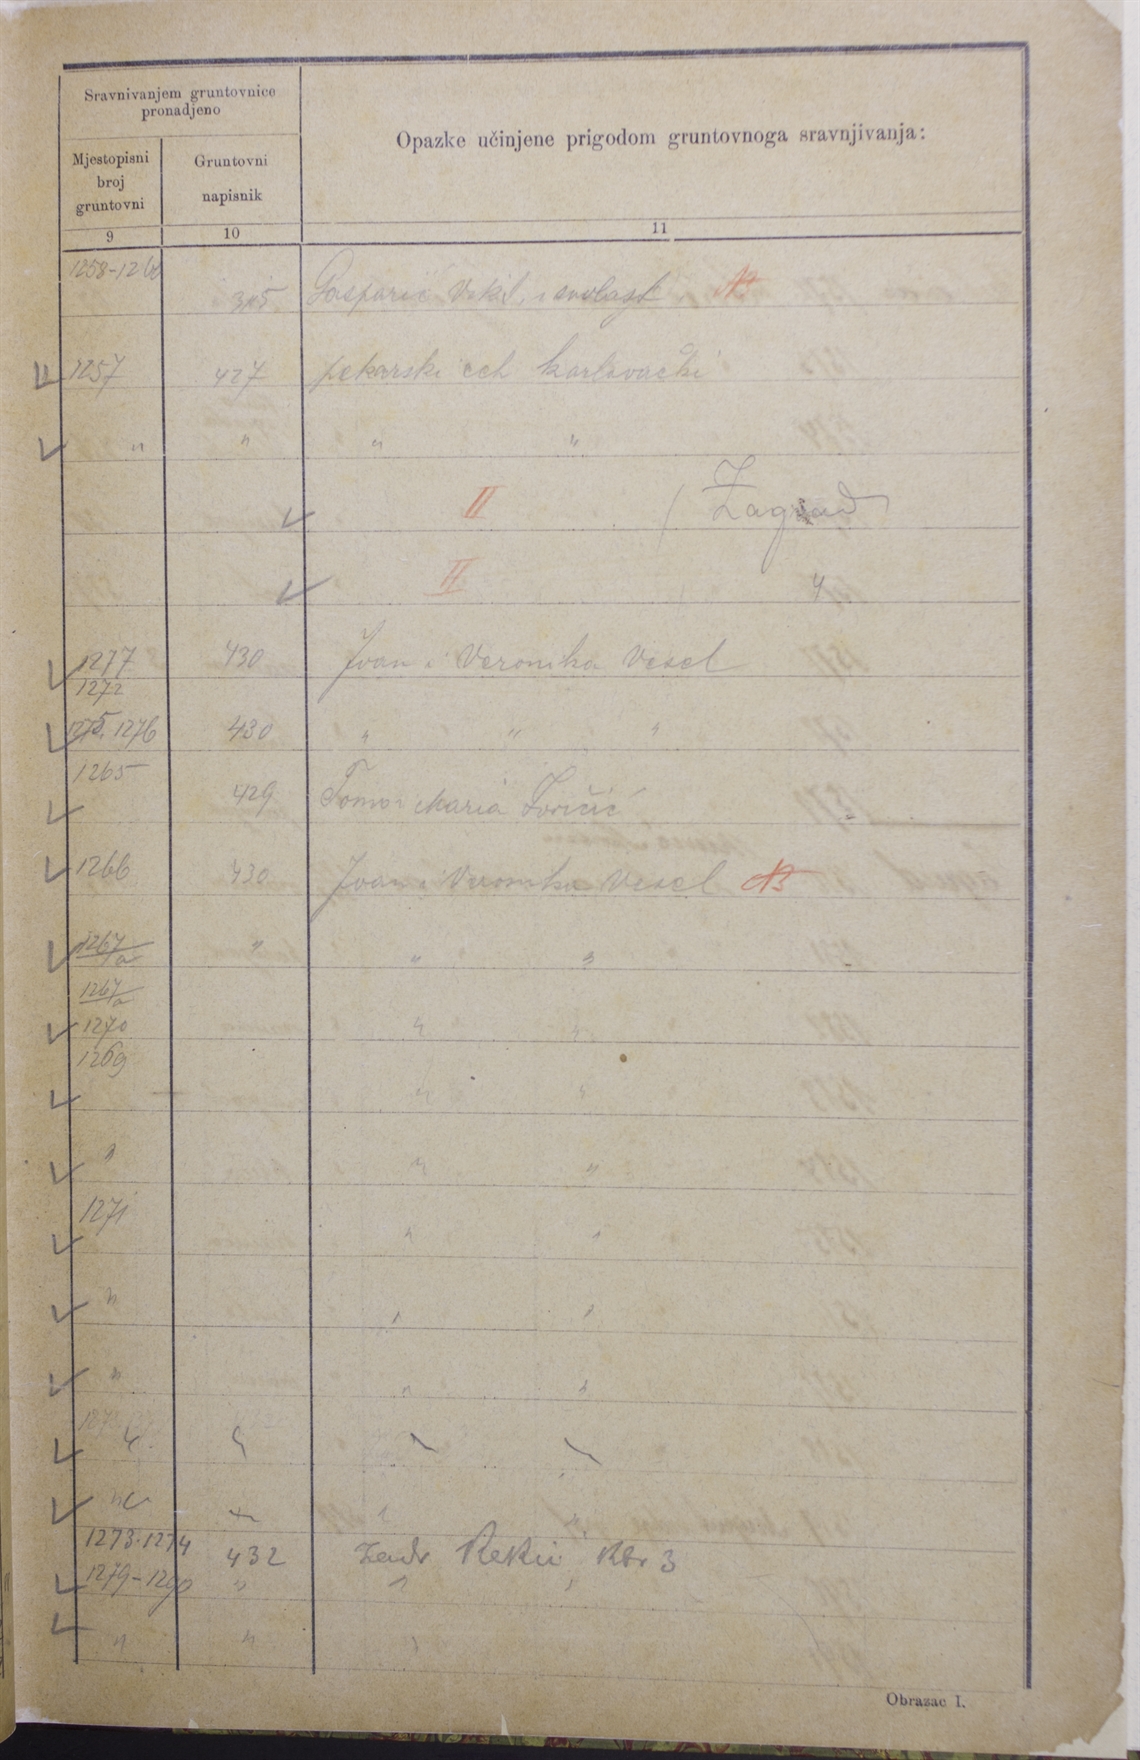 Sravnivanjem gruntovnice
pronadjeno
Opazke učinjene prigodom gruntovnoga sravnjivanja:
Mjestopisni
broj
gruntovni
Gruntovni
napisnik
9 10 11
1258-1260
345 Gasparić i ovolašt NB
1257 427 pekarski ceh karlovački
" " " "
II Zagrad
II "
1277 430 Ivan i Veronika Vesel
1272
1275. 1276 430 " " "
1265
429 Tomo i Maria
1266 430 Ivan i Veronika Vesel NB
1267/a " " "
1267/a
1270 " "
1269
" "
" " "
1271
" "
" " "
" " "
" " " "
" " "
1273.1274 432 Zadr Kbr 3
1279-1290 " " "
" " "
Obrazac I.